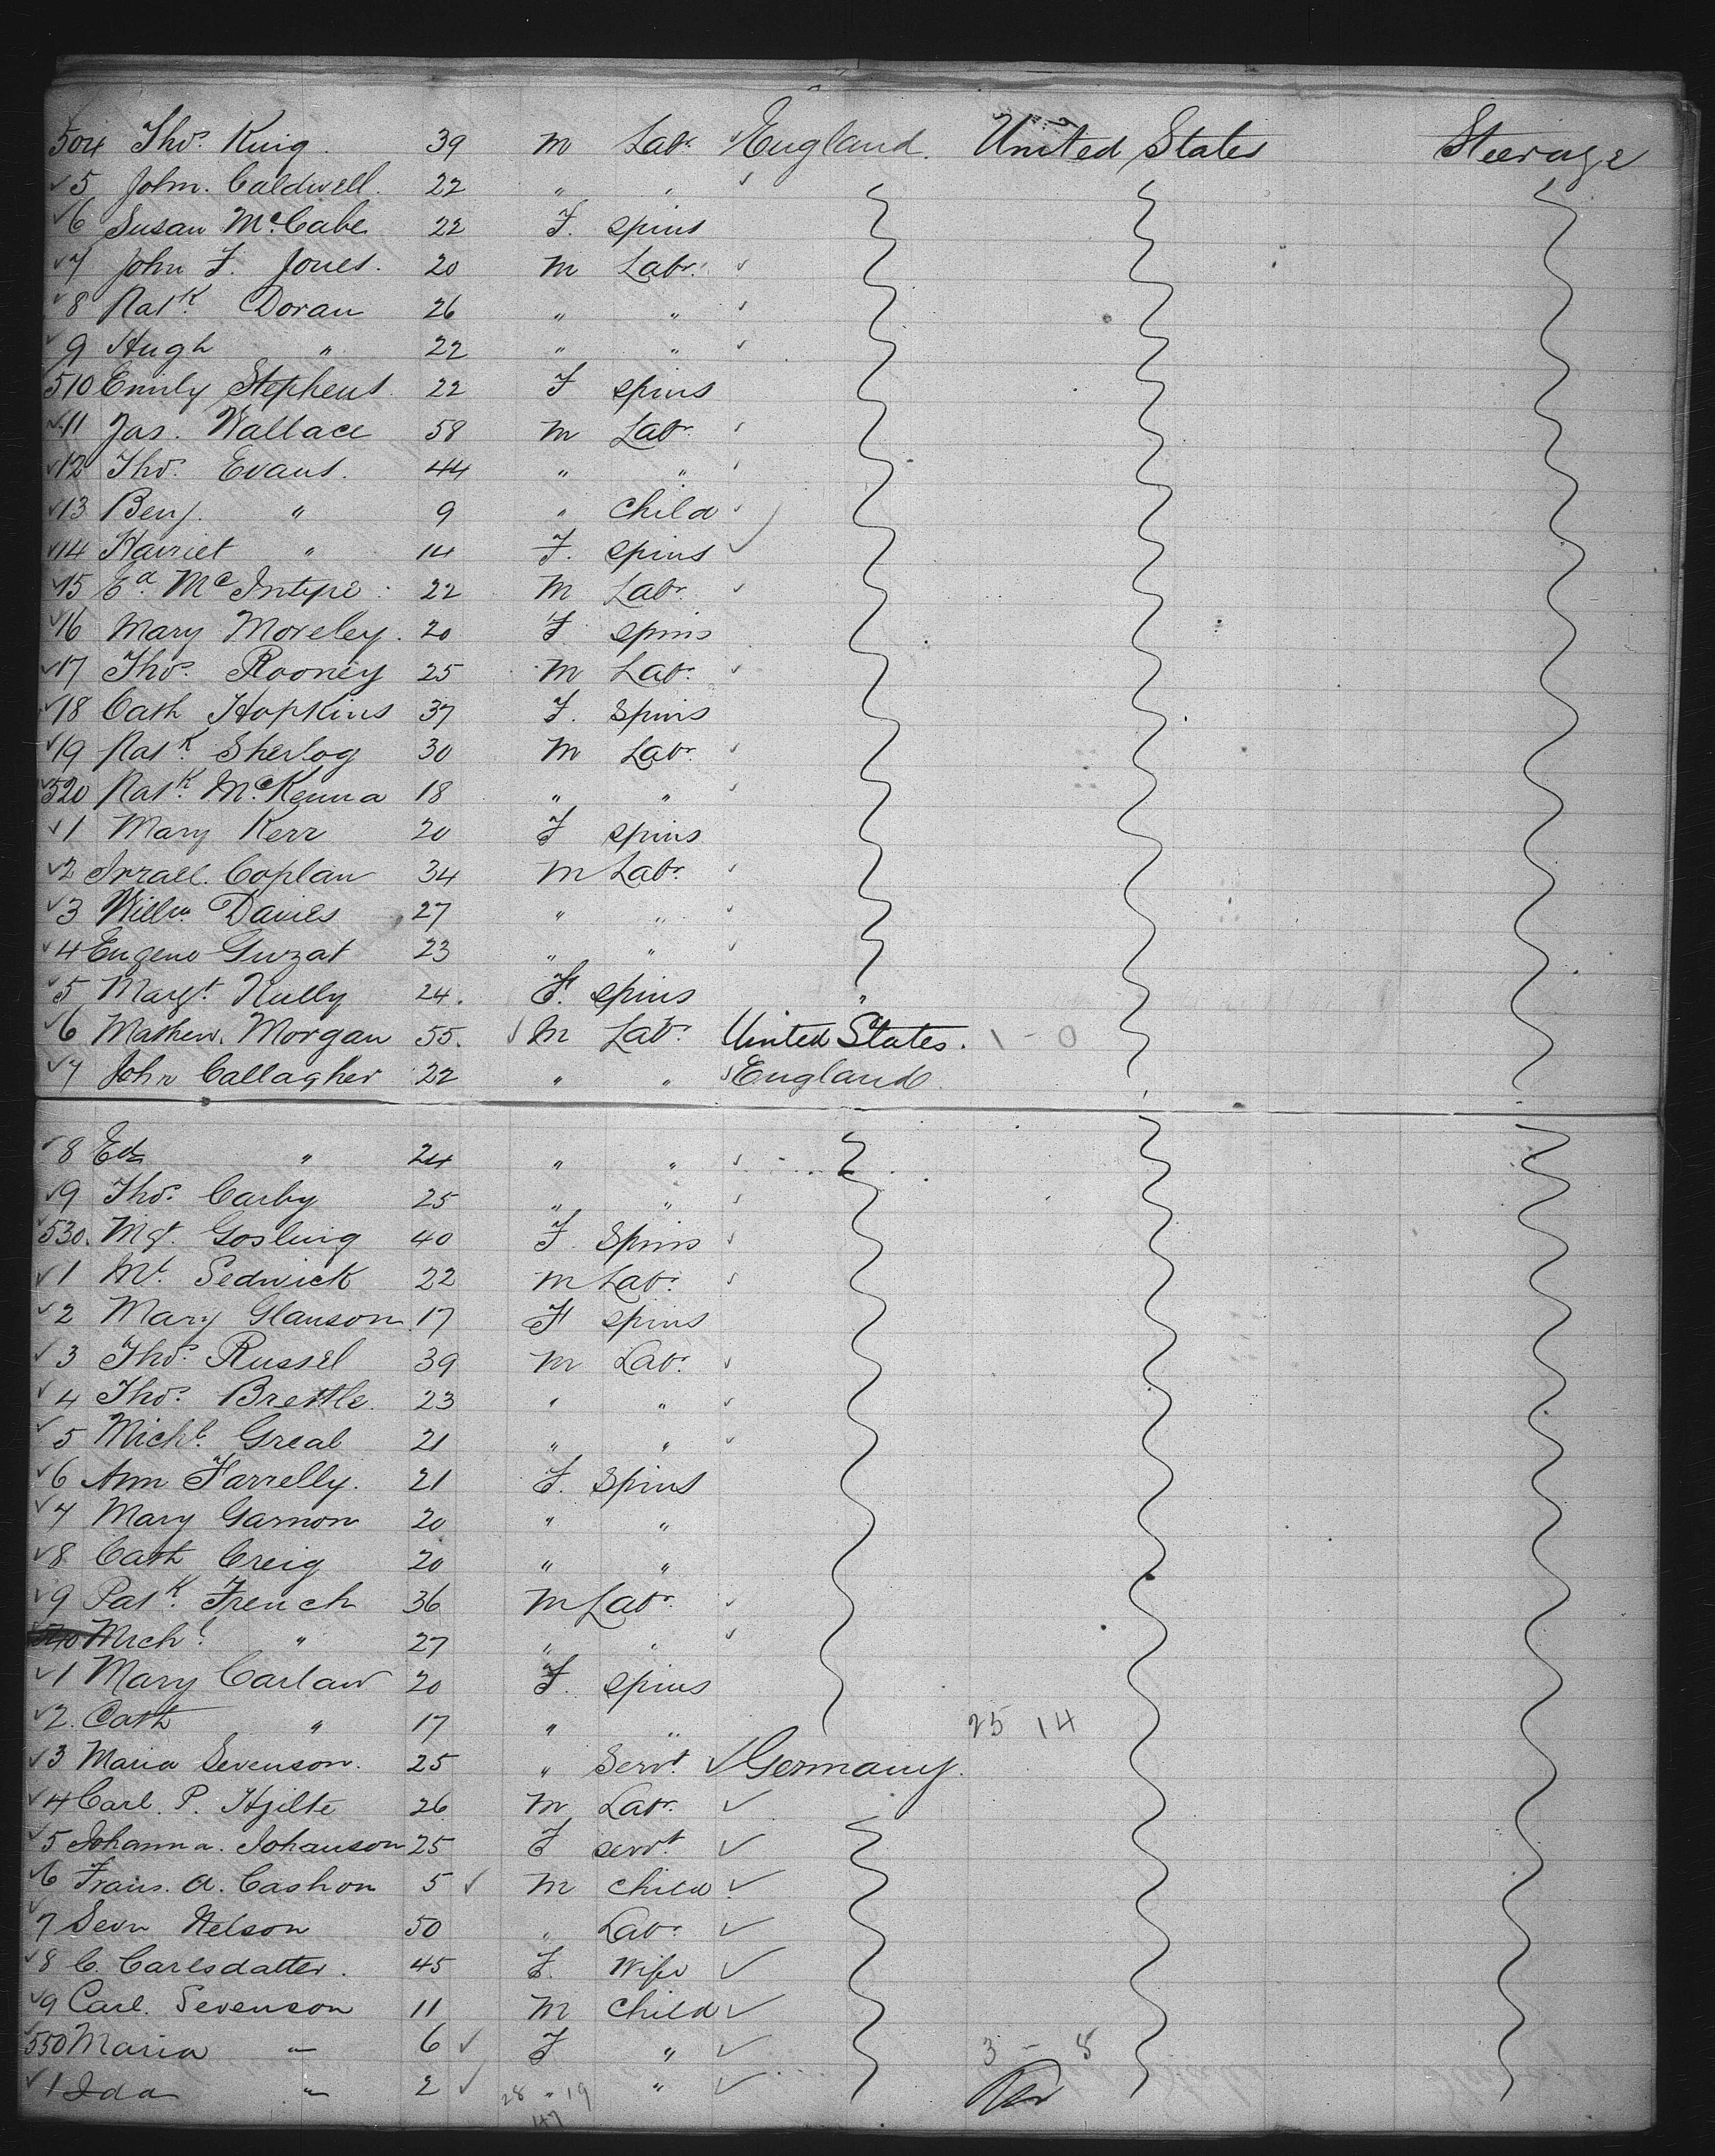 504 Thos. King. 39 m Labr. England. United States Steerage
5 John. Caldwell. 22 " "
6 Susan McCabe 22 F. spins
7 John F. Jones. 20 m Labr.
8 Patk. Doran 26 " "
9 Hugh " 22 " "
510 Emily Stephens 22 F spins
11 Jas. Wallace 58 m Labr.
12 Thos. Evans. 44 " "
13 Benj. " 9 " child
14 Harriet " 14 F. spins
15 Ed. McIntyre 22 m Labr.
16 Mary Moreley. 20 F spins
17 Thos. Rooney 25 m Labr.
18 Cath Hopkins 37 F. spins
19 Patk. Sherlog 30 m Labr.
520 Patk. McKenna 18 " "
1 Mary Kerr 20 F spins
2 Israel. Coplan 34 m Labr.
3 Willm Davies 27 " "
4 Eugene Guzat 23 " "
5 Margt. Nully 24. F. spins "
6 Mathew. Morgan 55. m Labr. United States. 1 - 0
7 John Callagher 22 " " England
8 Ed " 24 " "
9 Thos. Carby 25 " "
530. Mgt. Gosling 40 F. spins
1 Mt. Sedwick 22 m Labr.
2 Mary Glanson 17 F spins
3 Thos. Russel 39 m Labr.
4 Thos. Brettle. 23 " "
5 Michl. Greal 21 " "
6 Ann Farrelly. 21 F. spins
7 Mary Garnon 20 " "
8 Cath Creig 20 " "
9 Patk. French 36 m Labr.
540 Michl. " 27 " "
1 Mary Carlaw 20 F. spins
2. Cath " 17 " " 25 14
3 Maria Sevenson. 25 " Servt. Germany.
4 Carl. P. Hjilte 26 m Labr.
5 Johanna. Johanson 25 F servt.
6 Frans. A. Cashon 5 m child
7 Sevn Nelson 50 " Labr
8 C. Carlsdatter. 45 F. Wife
9 Carl. Sevenson 11 m child
550 Maria " 6 F " 3 - 5
1 Ida " 2 " "
28 19
47